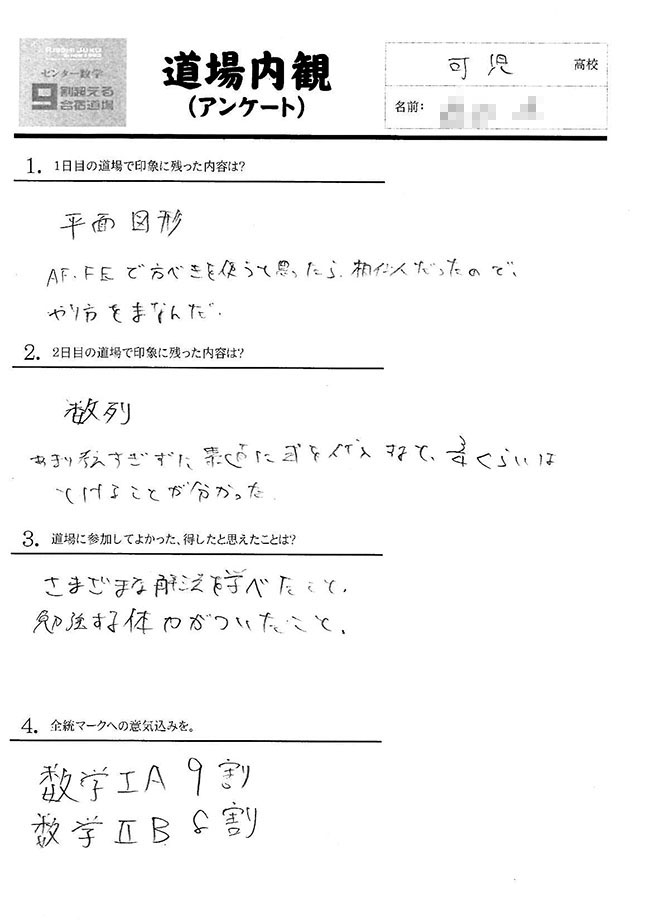 センター数学
9割超える
合宿道場
道場内観
(アンケート)
可児 高校
名前:
1. 1日目の道場で印象に残った内容は?
平面図形
AF・FEで方べきを使うと思ったら、相似だったので、
やり方をまなんだ。
2. 2日目の道場で印象に残った内容は?
数列
あまり考えすぎずに素直に式を代入すると、3/4くらいは
とけることが分かった。
3. 道場に参加してよかった、得したと思えたことは?
さまざまな解法を学べたこと、
勉強する体力がついたこと。
4. 全統マークへの意気込みを。
数学ⅠA 9割
数学ⅡB 8割